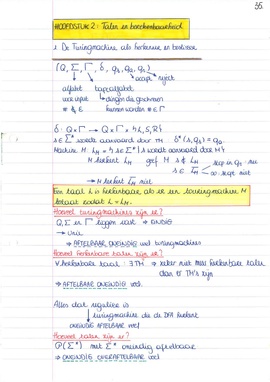 35.
HOOFDSTUK 2: Talen en berekenbaarheid
1 De Turingmachine als herkenner en beslisser
(Q, Σ, Γ, δ, qs, qa, qr)
accept reject
alfabet tapealfabet
voor input dingen die geschreven
# ∉ Σ kunnen worden # ∈ Γ
δ: Q×Γ → Q×Γ×{L,S,R}
s ∈ Σ* wordt aanvaard door TM δ*(s,qs) = qa
Machine M LM = {s ∈ Σ* | s wordt aanvaard door M}
M herkent LM geef M s ∉ LM
→ M herkent LM niet
Een taal L is herkenbaar als er een turingmachine M
bestaat zodat L = LM.
Hoeveel turingmachines zijn er?
Q, Σ en Γ liggen vast ⇒ EINDIG
⇒ AFTELBAAR ONEINDIG veel turingmachines
Hoeveel herkenbare talen zijn er?
∀ herkenbare taal: ∃ TM ⇒ zeker niet meer herkenbare talen
dan er TM's zijn
⇒ AFTELBAAR ONEINDIG veel
Alles dat regulier is
turingmachine die de DFA herkent
ONEINDIG AFTELBAAR veel
Hoeveel talen zijn er?
P(Σ*) met Σ* oneindig aftelbaar
⇒ ONEINDIG OVERAFTELBAAR veel